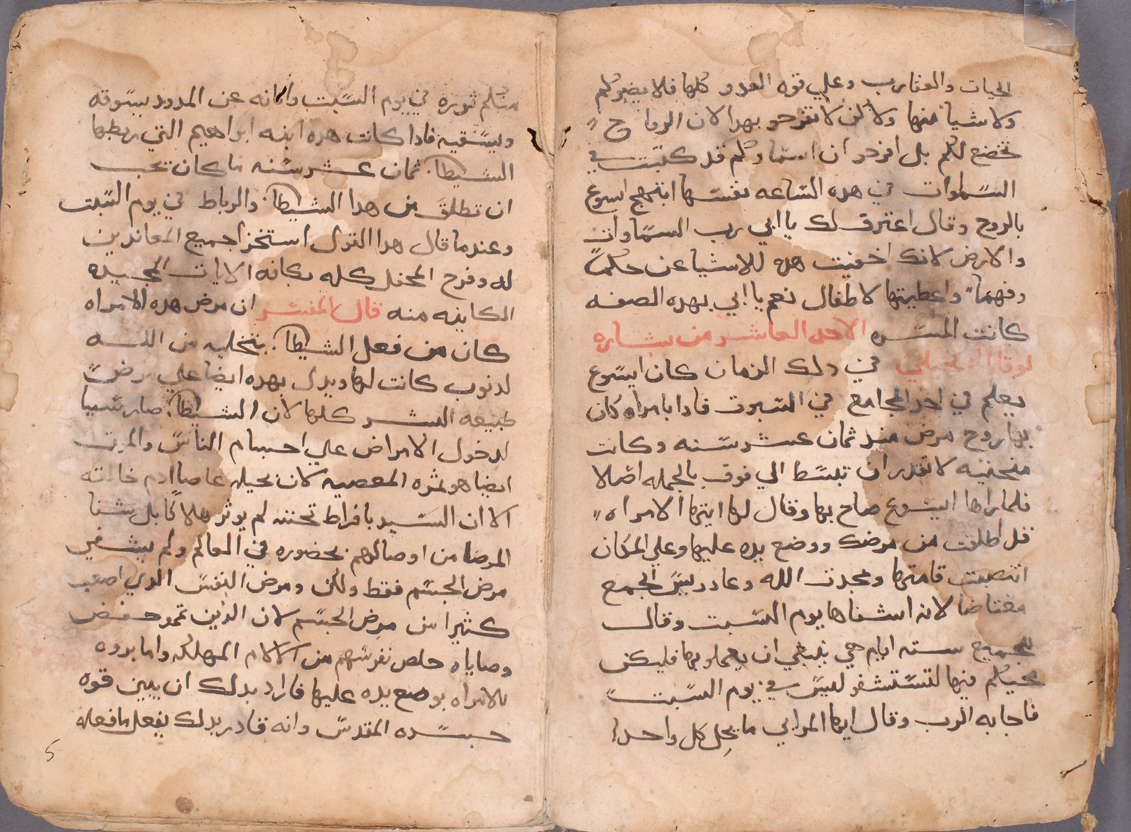 الحيات والعقارب وعلي قوه العدو كلها فلا يضركم
ولا شيا منها ولاكن لا تفرحو بهدا لان الرواح
تخضع لكم بل افرحو ان اسماوكم قد كتبت في
السموات في هده الساعه نفسها ابتهج ايسوع
بالروح وقال اعترف لك يا ابي رب السماوات
والارض لانك اخفيت هده للاشيا عن حكما
وفهما واعطيتها لاطفال نعم يا ابي بهده الصفه
كانت المسره الاحد العاشر من بشاره
لوقا الانجيلي في دلك الزمان كان ايسوع
يعلم في احد المجامع في السبوت فادا بامراه كان
بها روح مرض مند ثمان عشر سنه وكانت
منحنيه لا تقدر ان تبسط الي فوق بالجمله اصلا
فلما راها ايسوع صاح بها وقال لها ايتها الامراه
قد اطلقت من مرضك ووضع يده عليها وعلي المكان
انتصبت قامتها ومجدت الله وعاد ريس الجمع
مغتاضا لانه اشفاها يوم السبت وقال
للجميع سته ايام هي ينبغي ان يعملو فيها فليكن
مجيكم فيها لتستشفو ليس في يوم السبت
فاجابه الرب وقال ايها المرابي ما يحل كل واحد
منكم ثوره في يوم السبت واتانه عن المدود يسوقه
ويسقيه فادا كانت هده ابنه ابراهيم التي ربطها
الشيطان ثمان عشر سنه ما كان يجب
ان تطلق من هدا الشيطان والرباط في يوم السبت
وعندما قال هدا القول استخزا جميع المعاندين
له وفرح المحفل كله بكافه الايات المجيده
الكاينه منه قال المفسر ان مرض هده الامراه
كان من فعل الشيطان بتخليه من الله
لدنوب كانت لها ويدل بهده ايضا علي مرض
طبيعه البشر كلها لان الشيطان صار سببا
لدخول الامراض علي احسام الناس والموت
ايضا هو ثمره المعصيه لان بحيله عاصا ادم خالقه
الا ان السيد بافراط تحننه لم يوثر هلاكا بل شفا
المرضا من اوصالهم بحضوره في العالم ولم يشفي
مرض الجسم فقط ولكن ومرض النفس الدي اصعب
كثيرا من مرض الجسم لان الدين تمر حفض
وصاياه خلص نفوسهم من الالام المهلكه واما بروه
للامراه بوضع يده عليها فاراد بدلك ان يبين قوه
جسده المقدس وانه قادر بدلك يفعل ما فعله
5